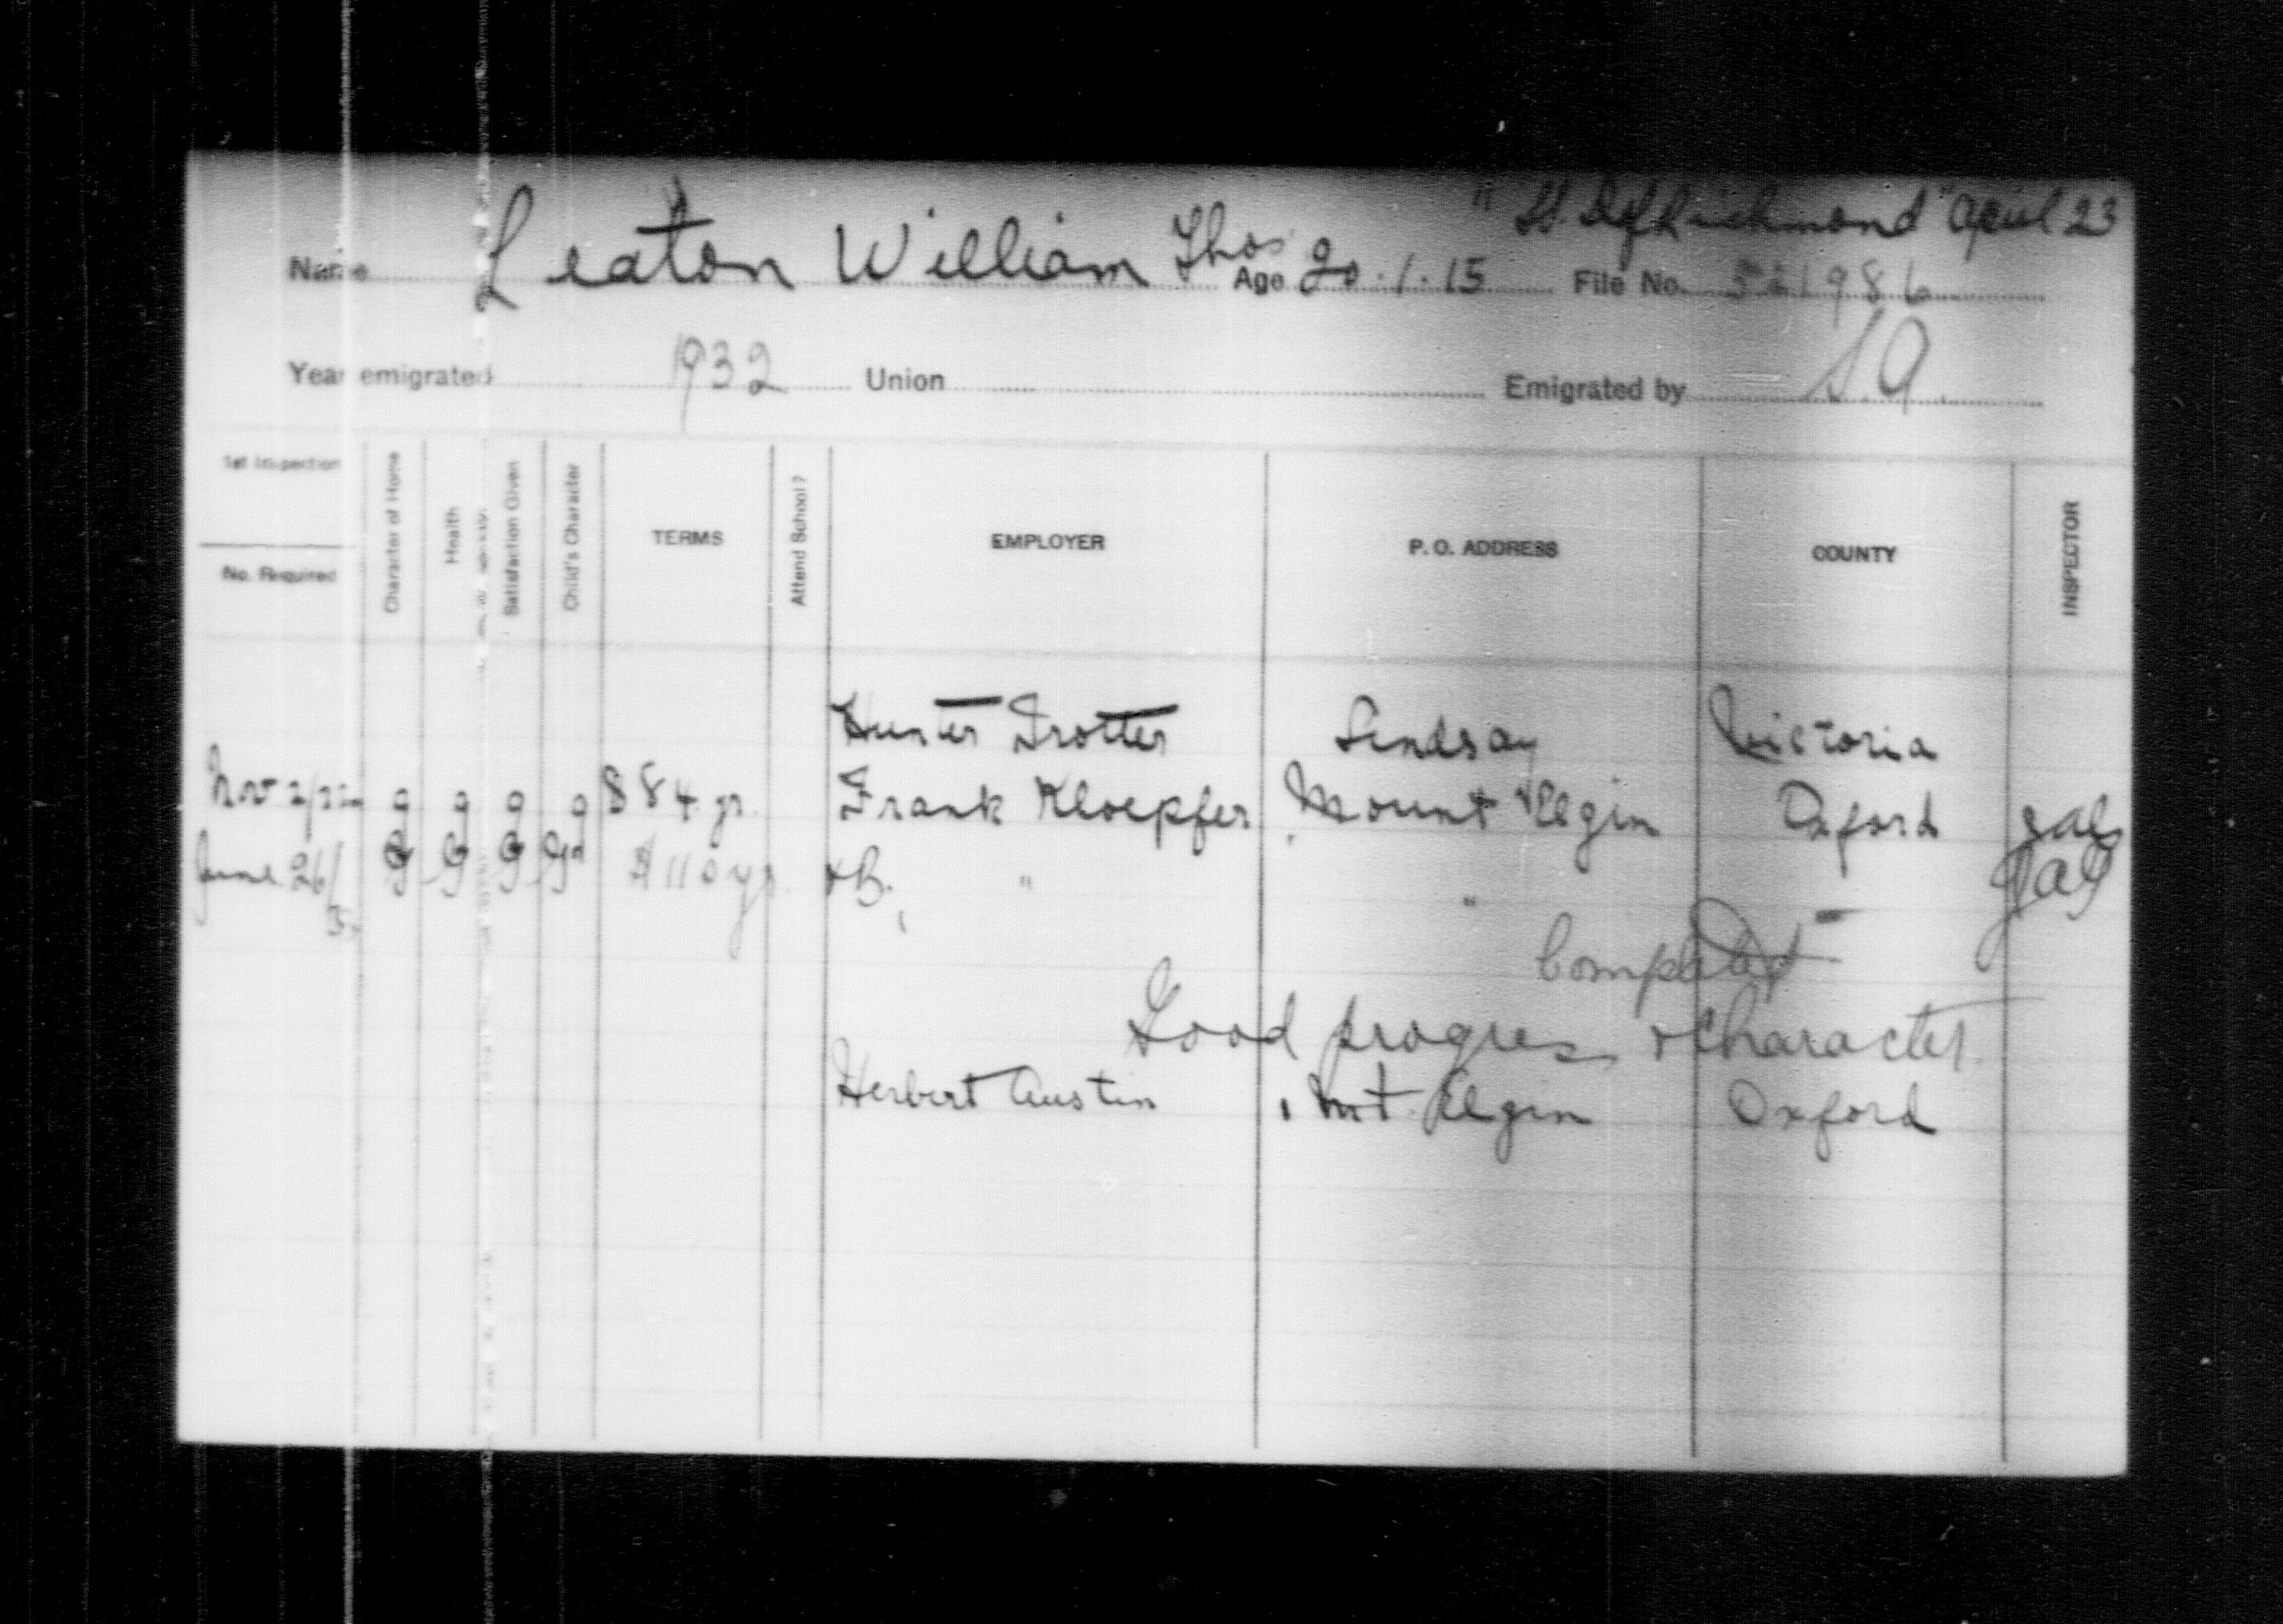 " St. Dof Richmond" April 23
Name Leaton William Thos Age 20.1.15 File No. 521986
Year emigrated 1932 Union Emigrated by S.A.
1st Inspection
No. Required
Character of Home
Health
Satisfaction Given
Child's Character
TERMS
Attend School?
EMPLOYER
P. O. ADDRESS
COUNTY
INSPECTOR
Hunter Trotter Lindsay Victoria
Nov 2/32 g g g g $84 yr. Frank Kloepfer Mount Elgin Oxford
June 26/ G G G Gd $110 yr. &B. " "
Completed
Good progress & Character.
Herbert Austin Mt. Elgin Oxford